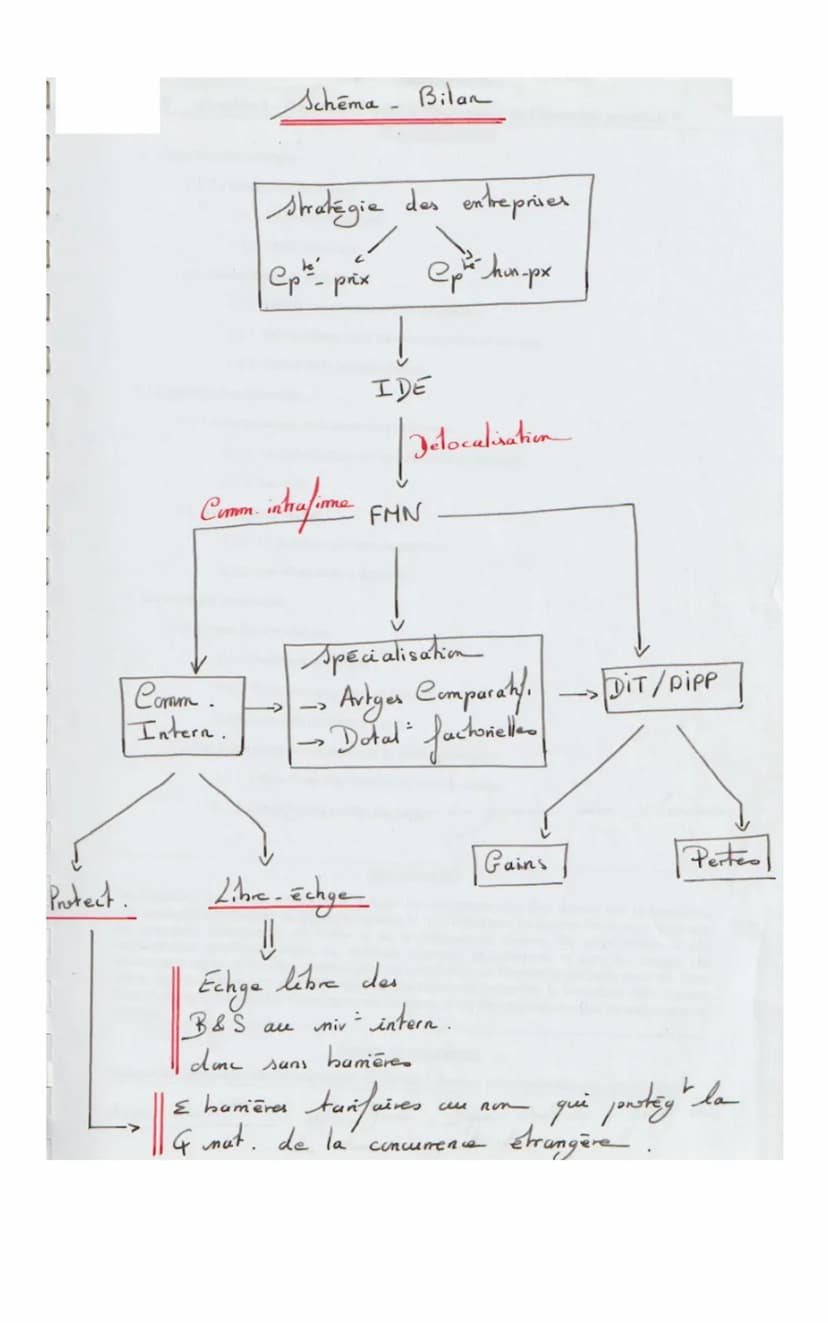 Schéma - Bilan
Stratégie des entreprises
Cpté - prix
Cpté hors-px
IDE
Délocalisation
Comm. intrafirme
FMN
Spécialisation
→ Avtges Comparatif.
→ Dotat° factorielles
Comm.
Intern.
DiT/DiPP
Gains
Pertes
Protect.
Libre-échge
Echge libre des
B & S au niv = intern.
donc sans barrières
Σ barrières tarifaires ou non qui protègt la
nat. de la concurrence étrangère.